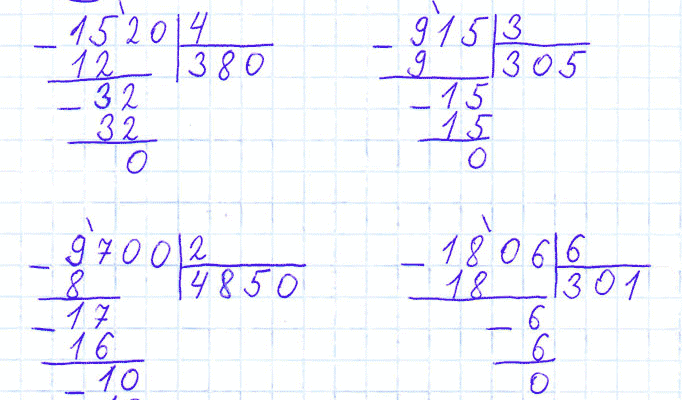 - 1520 | 4
12 | 380
- 32
32
0
- 915 | 3
9 | 305
- 15
15
0
- 9700 | 2
8 | 4850
- 17
16
- 10
- 1806 | 6
18 | 301
- 6
6
0